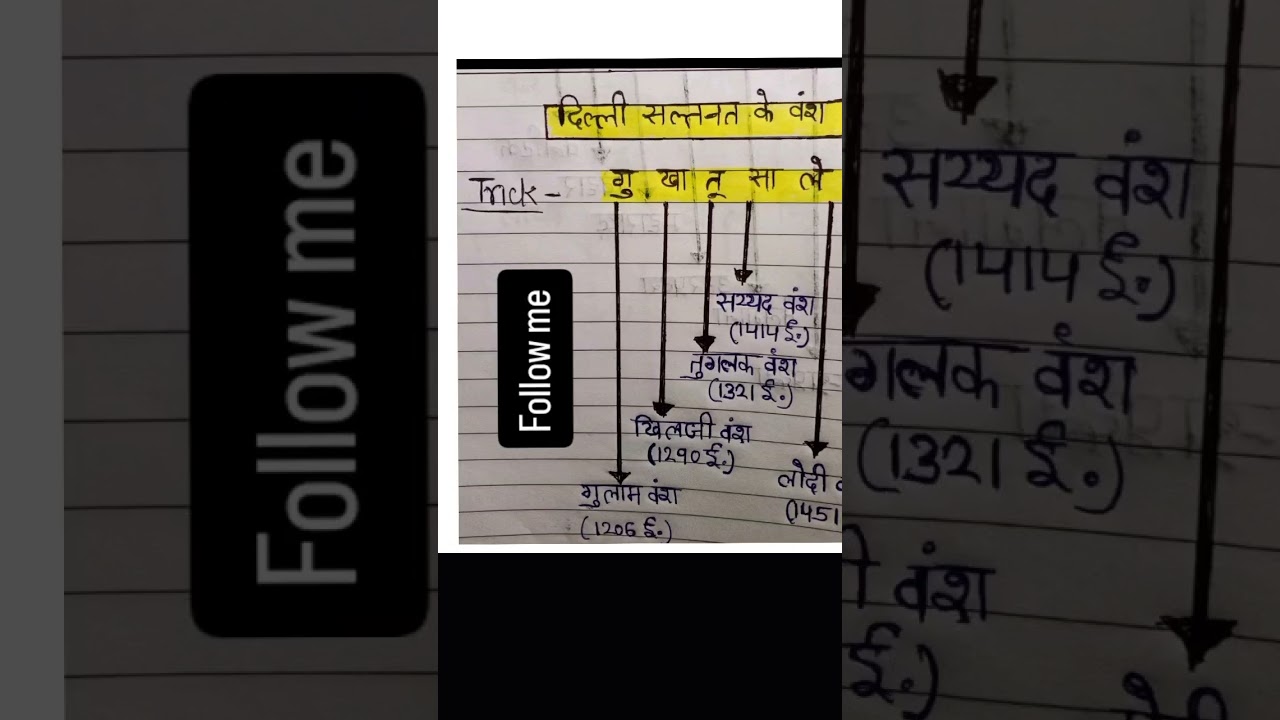 Follow me
दिल्ली सल्तनत के वंश
Trick - गु खा तू सा ले
Follow me
सय्यद वंश
(1414 ई.)
तुगलक वंश
(1321 ई.)
खिलजी वंश
(1290 ई.)
लोदी
(1451
गुलाम वंश
(1206 ई.)
सय्यद वंश
(1414 ई.)
गलक वंश
(1321 ई.)
वंश
ई.)